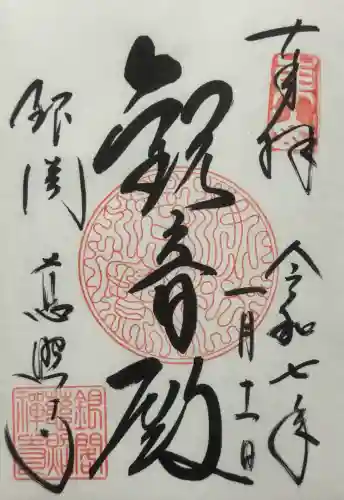 奉拝
令和七年
一月十一日
観音殿
銀閣
慈照寺
銀閣
慈照
禅寺